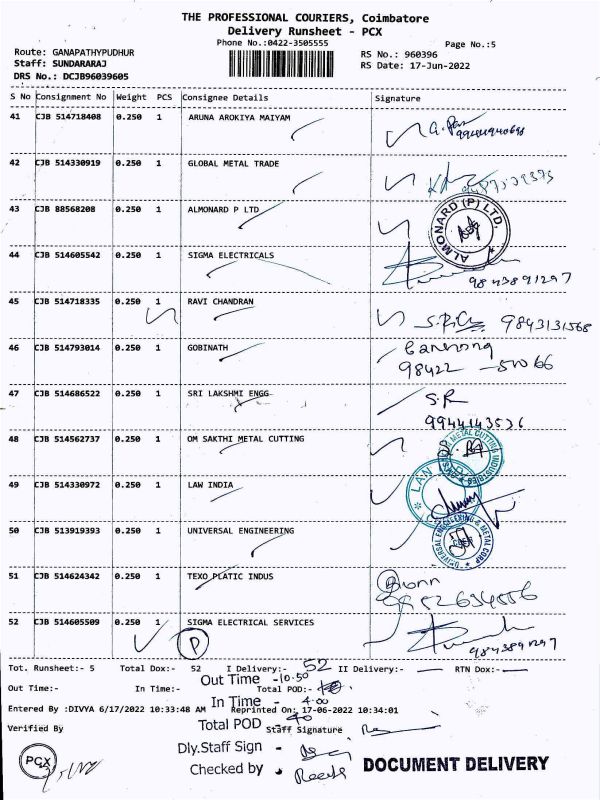 THE PROFESSIONAL COURIERS, Coimbatore
Delivery Runsheet - PCX
Phone No.:0422-3505555
Page No.:5
Route: GANAPATHYPUDHUR
RS No.: 960396
Staff: SUNDARARAJ
RS Date: 17-Jun-2022
DRS No.: DCJB96039605
S No Consignment No Weight PCS Consignee Details Signature
41 CJB 514718408 0.250 1 ARUNA AROKIYA MAIYAM
42 CJB 514330919 0.250 1 GLOBAL METAL TRADE
43 CJB 88568208 0.250 1 ALMONARD P LTD
ALMONARD (P) LTD.
44 CJB 514605542 0.250 1 SIGMA ELECTRICALS
9843891297
45 CJB 514718335 0.250 1 RAVI CHANDRAN
9843131568
46 CJB 514793014 0.250 1 GOBINATH
98422 - 50066
47 CJB 514686522 0.250 1 SRI LAKSHMI ENGG
S.R
9944143536
48 CJB 514562737 0.250 1 OM SAKTHI METAL CUTTING
METAL CUTTING INDUSTRIES
49 CJB 514330972 0.250 1 LAW INDIA
50 CJB 513919393 0.250 1 UNIVERSAL ENGINEERING
UNIVERSAL ENGINEERING & METAL CORP
51 CJB 514624342 0.250 1 TEXO PLATIC INDUS
52 CJB 514605509 0.250 1 SIGMA ELECTRICAL SERVICES
P
9843891297
Tot. Runsheet:- 5 Total Dox:- 52 I Delivery:- 52 II Delivery:- RTN Dox:-
Out Time -10.50
Out Time:- In Time:- Total POD:-
In Time - 4.00
Entered By :DIVYA 6/17/2022 10:33:48 AM Reprinted On: 17-06-2022 10:34:01
Total POD - 40
Verified By Staff Signature
Dly.Staff Sign -
Checked by -
PCX
DOCUMENT DELIVERY